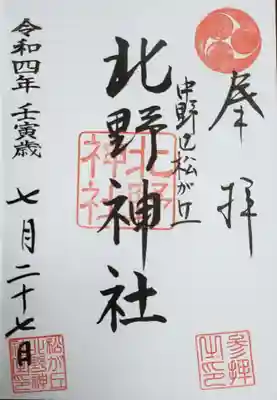 奉拝
中野区松が丘
北野神社
北野神社
令和四年 壬寅歳
七月二十七日
参拝之印
松が丘北野神社之印